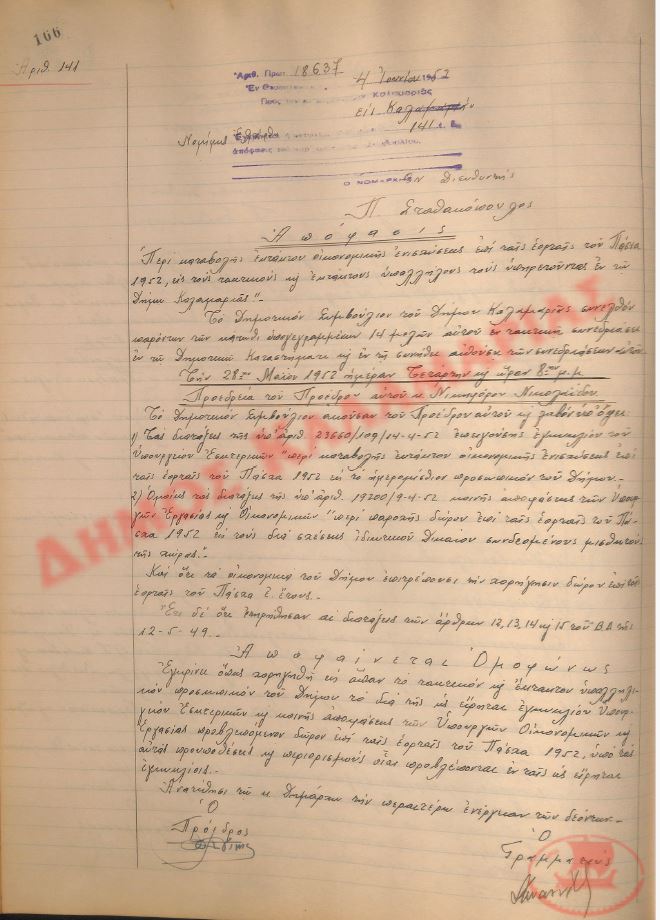 166
Ἀριθ. 141
Ἀριθ. Πρωτ. 18637
4 Ἰουνίου 1952
Καλαμαριᾶς
εἰς Καλαμαριὰν
141
Ὁ ΝΟΜΑΡΧΗΣ
Διευθυντής
Π. Σταθακόπουλος
Ἀπόφασις
"Περὶ καταβολῆς ἐκτάκτου οἰκονομικῆς ἐνισχύσεως ἐπὶ ταῖς ἑορταῖς τοῦ Πάσχα
1952, εἰς τοὺς τακτικοὺς κ ἐκτάκτους ὑπαλλήλους τοὺς ὑπηρετοῦντας ἐν τῷ
Δήμῳ Καλαμαριᾶς".-
Τὸ Δημοτικὸν Συμβούλιον τοῦ Δήμου Καλαμαριᾶς συνελθὸν
παρόντων τῶν κάτωθι ὑπογεγραμμένων 14 μελῶν αὐτοῦ ἐν τακτικῇ συνεδριάσει
ἐν τῷ Δημοτικῷ Καταστήματι κ ἐν τῇ συνήθει αἰθούσῃ τῶν συνεδριάσεων αὐτοῦ
Τὴν 28ην Μαΐου 1952 ἡμέραν Τετάρτην κ ὥραν 8ην μ.μ.
Προεδρείᾳ τοῦ Προέδρου αὐτοῦ κ. Νικηφόρου Νικολαΐδου.
Τὸ Δημοτικὸν Συμβούλιον ἀκοῦσαν τοῦ Προέδρου αὐτοῦ κ λαβὸν ὑπ' ὄψει
1) Τὰς διατάξεις τῆς ὑπ' ἀριθ. 23660/109/14-4-52 ἐπειγούσης ἐγκυκλίου τοῦ
Ὑπουργείου Ἐσωτερικῶν "περὶ καταβολῆς ἐκτάκτου οἰκονομικῆς ἐνισχύσεως ἐπὶ
ταῖς ἑορταῖς τοῦ Πάσχα 1952 εἰς τὸ ἡμερομίσθιον προσωπικὸν τοῦ Δήμου.-
2) Ὁμοίως τὰς διατάξεις τῆς ὑπ' ἀριθ. 19200/9-4-52 κοινῆς ἀποφάσεως τῶν Ὑπουρ-
γῶν Ἐργασίας κ Οἰκονομικῶν "περὶ παροχῆς δώρου ἐπὶ ταῖς ἑορταῖς τοῦ Πά-
σχα 1952 εἰς τοὺς διὰ σχέσεως ἰδιωτικοῦ Δικαίου συνδεομένους μισθωτοὺς
τῆς χώρας".-
Καὶ ὅτι τὰ οἰκονομικὰ τοῦ Δήμου ἐπιτρέπουσι τὴν χορήγησιν δώρου ἐπὶ ταῖς
ἑορταῖς τοῦ Πάσχα ἐ. ἔτους.-
Ἔτι δὲ ὅτι ἐτηρήθησαν αἱ διατάξεις τῶν ἄρθρων 12, 13, 14 κ 15 τοῦ Β.Δ. τῆς
12-5-49.-
Ἀποφαίνεται Ὁμοφώνως
Ἐγκρίνει ὅπως χορηγηθῇ εἰς ἅπαν τὸ τακτικὸν κ ἔκτακτον ὑπαλληλι-
κὸν προσωπικὸν τοῦ Δήμου τὸ διὰ τῆς ὡς εἴρηται ἐγκυκλίου Ὑπουρ-
γῶν Ἐσωτερικῶν κ κοινῆς ἀποφάσεως τῶν Ὑπουργῶν Οἰκονομικῶν κ
Ἐργασίας προβλεπόμενον δῶρον ἐπὶ ταῖς ἑορταῖς τοῦ Πάσχα 1952, ὑπὸ τὰς
αὐτὰς προϋποθέσεις κ περιορισμοὺς οἵας προβλέπονται ἐν ταῖς ὡς εἴρηται
ἐγκυκλίοις.-
Ἀνατίθησι τῷ κ Δημάρχῳ τὴν περαιτέρω ἐνέργειαν τῶν δεόντων.-
Ὁ
Πρόεδρος
Ὁ
Γραμματεὺς
ΔΗΜΟΣ ΚΑΛΑΜΑΡΙΑΣ